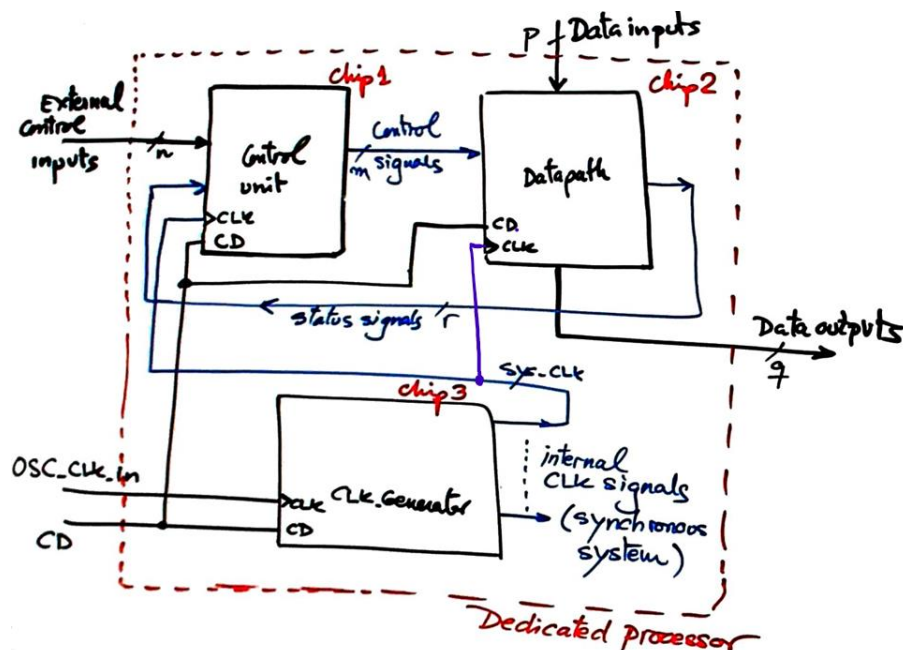 P Data inputs
chip1
chip2
External
Control
inputs
n
Control
unit
Control
m signals
Datapath
CLK
CD
CD.
CLK
status signals r
Data outputs
q
SYS_CLK
chip3
OSC_CLK_in
CLK
CLK_Generator
CD
CD
internal
CLK signals
(synchronous
system)
Dedicated processor